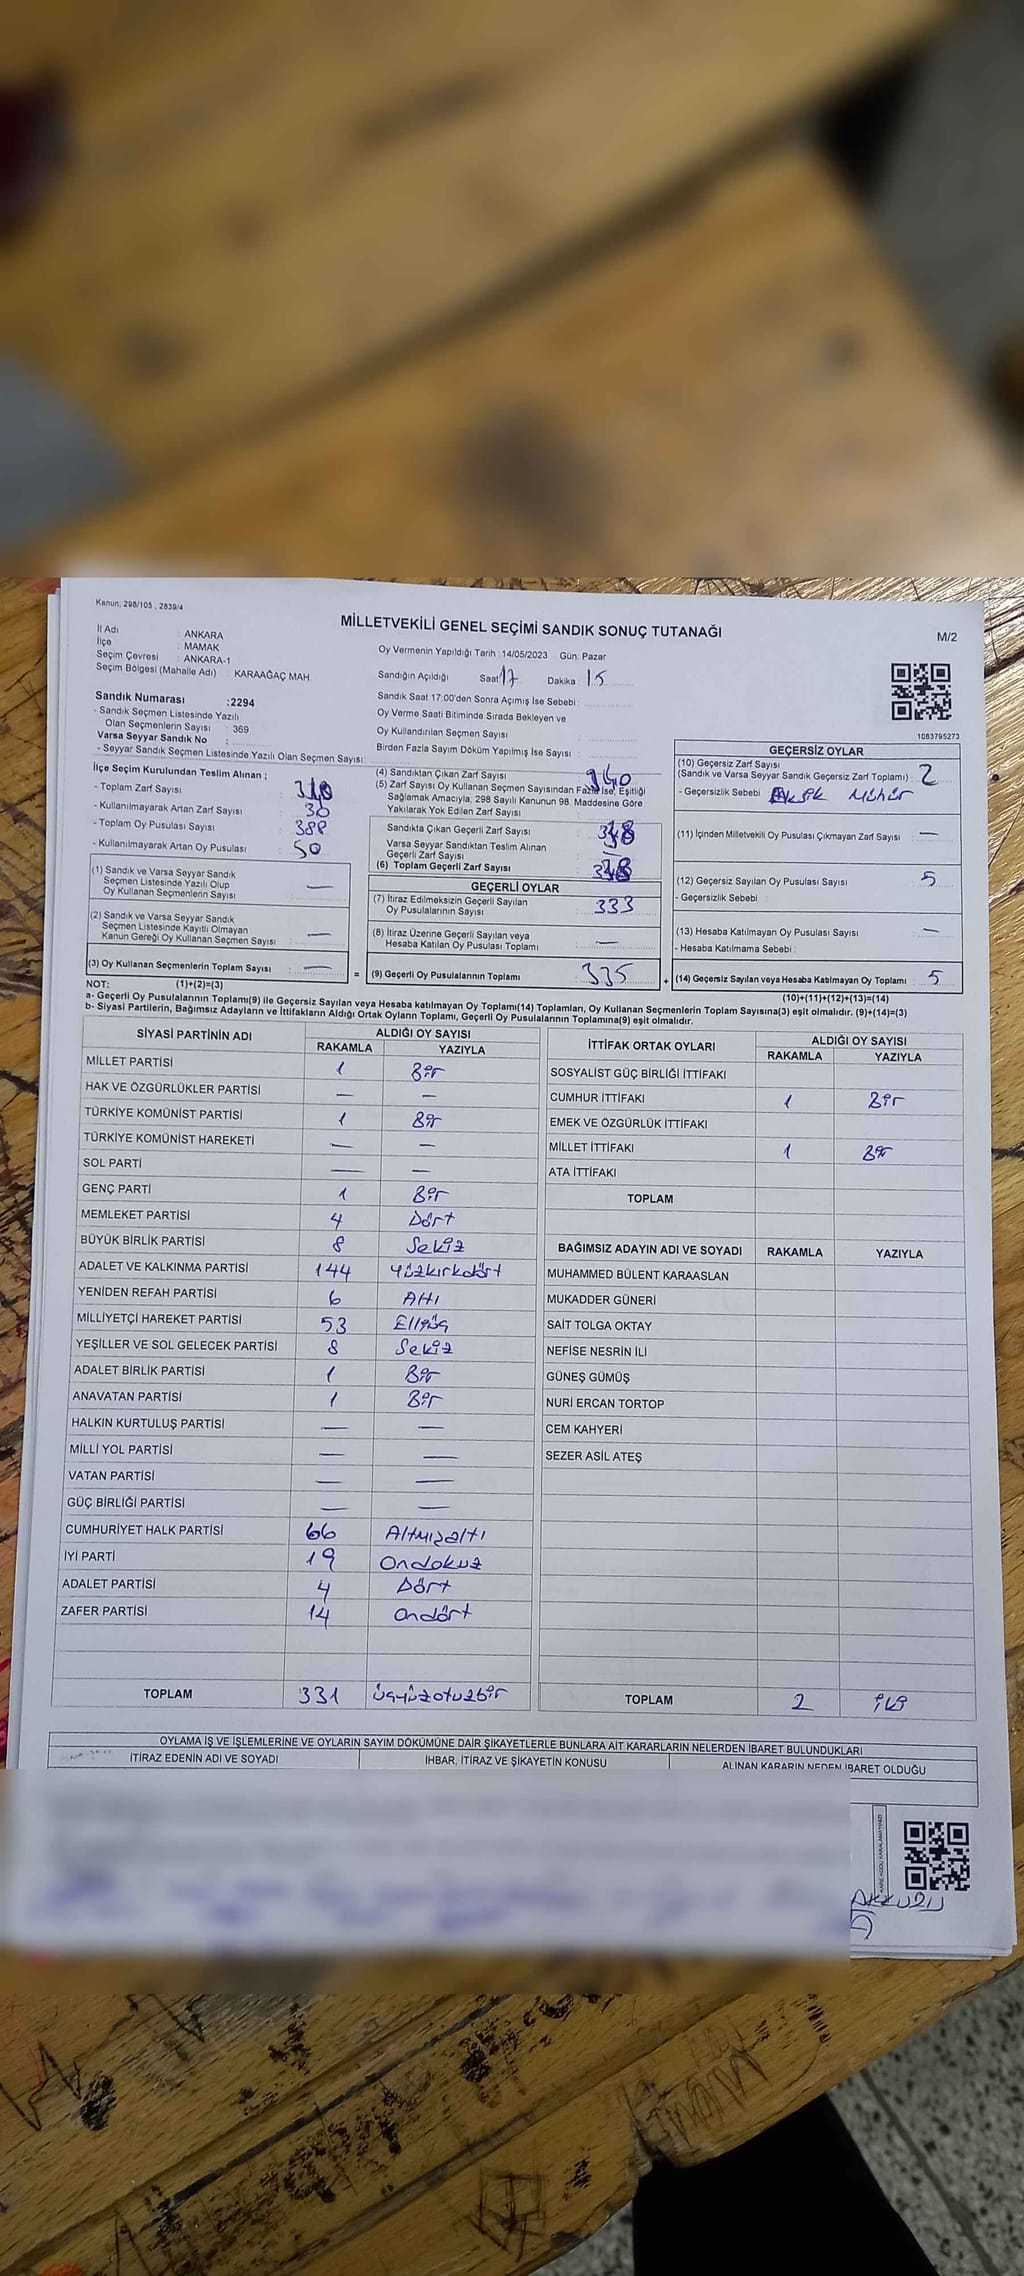 Kanun, 298/105 , 2839/4
MİLLETVEKİLİ GENEL SEÇİMİ SANDIK SONUÇ TUTANAĞI
M/2
İl Adı : ANKARA
İlçe : MAMAK
Seçim Çevresi : ANKARA-1
Seçim Bölgesi (Mahalle Adı) : KARAAĞAÇ MAH.
Oy Vermenin Yapıldığı Tarih :14/05/2023 Gün: Pazar
Sandığın Açıldığı Saat 17 Dakika : 15
Sandık Saat 17:00'den Sonra Açımış İse Sebebi :
Oy Verme Saati Bitiminde Sırada Bekleyen ve
Oy Kullandırılan Seçmen Sayısı :
Birden Fazla Sayım Döküm Yapılmış İse Sayısı :
1083795273
Sandık Numarası :2294
- Sandık Seçmen Listesinde Yazılı
Olan Seçmenlerin Sayısı : 369
Varsa Seyyar Sandık No :
- Seyyar Sandık Seçmen Listesinde Yazılı Olan Seçmen Sayısı:
İlçe Seçim Kurulundan Teslim Alınan ;
- Toplam Zarf Sayısı :
- Kullanılmayarak Artan Zarf Sayısı : 30
- Toplam Oy Pusulası Sayısı : 388
- Kullanılmayarak Artan Oy Pusulası : 50
(1) Sandık ve Varsa Seyyar Sandık
Seçmen Listesinde Yazılı Olup
Oy Kullanan Seçmenlerin Sayısı : —
(2) Sandık ve Varsa Seyyar Sandık
Seçmen Listesinde Kayıtlı Olmayan
Kanun Gereği Oy Kullanan Seçmen Sayısı : —
(3) Oy Kullanan Seçmenlerin Toplam Sayısı : —
(4) Sandıktan Çıkan Zarf Sayısı : 340
(5) Zarf Sayısı Oy Kullanan Seçmen Sayısından Fazla İse, Eşitliği
Sağlamak Amacıyla, 298 Sayılı Kanunun 98. Maddesine Göre
Yakılarak Yok Edilen Zarf Sayısı :
Sandıkta Çıkan Geçerli Zarf Sayısı : 338
Varsa Seyyar Sandıktan Teslim Alınan
Geçerli Zarf Sayısı :
(6) Toplam Geçerli Zarf Sayısı : 338
GEÇERLİ OYLAR
(7) İtiraz Edilmeksizin Geçerli Sayılan
Oy Pusulalarının Sayısı : 333
(8) İtiraz Üzerine Geçerli Sayılan veya
Hesaba Katılan Oy Pusulası Toplamı : —
= (9) Geçerli Oy Pusulalarının Toplamı : 335
GEÇERSİZ OYLAR
(10) Geçersiz Zarf Sayısı
(Sandık ve Varsa Seyyar Sandık Geçersiz Zarf Toplamı) : 2
- Geçersizlik Sebebi : Eksik Mühür
(11) İçinden Milletvekili Oy Pusulası Çıkmayan Zarf Sayısı : —
(12) Geçersiz Sayılan Oy Pusulası Sayısı : 5
- Geçersizlik Sebebi :
(13) Hesaba Katılmayan Oy Pusulası Sayısı : —
- Hesaba Katılmama Sebebi :
+ (14) Geçersiz Sayılan veya Hesaba Katılmayan Oy Toplamı : 5
NOT: (1)+(2)=(3)
(10)+(11)+(12)+(13)=(14)
a- Geçerli Oy Pusulalarının Toplamı(9) ile Geçersiz Sayılan veya Hesaba katılmayan Oy Toplamı(14) Toplamları, Oy Kullanan Seçmenlerin Toplam Sayısına(3) eşit olmalıdır. (9)+(14)=(3)
b- Siyasi Partilerin, Bağımsız Adayların ve İttifakların Aldığı Ortak Oyların Toplamı, Geçerli Oy Pusulalarının Toplamına(9) eşit olmalıdır.
SİYASİ PARTİNİN ADI ALDIĞI OY SAYISI
RAKAMLA YAZIYLA
MİLLET PARTİSİ 1 Bir
HAK VE ÖZGÜRLÜKLER PARTİSİ — —
TÜRKİYE KOMÜNİST PARTİSİ 1 Bir
TÜRKİYE KOMÜNİST HAREKETİ — —
SOL PARTİ — —
GENÇ PARTİ 1 Bir
MEMLEKET PARTİSİ 4 Dört
BÜYÜK BİRLİK PARTİSİ 8 Sekiz
ADALET VE KALKINMA PARTİSİ 144 Yüzkırkdört
YENİDEN REFAH PARTİSİ 6 Altı
MİLLİYETÇİ HAREKET PARTİSİ 53 Elliüç
YEŞİLLER VE SOL GELECEK PARTİSİ 8 Sekiz
ADALET BİRLİK PARTİSİ 1 Bir
ANAVATAN PARTİSİ 1 Bir
HALKIN KURTULUŞ PARTİSİ — —
MİLLİ YOL PARTİSİ — —
VATAN PARTİSİ — —
GÜÇ BİRLİĞİ PARTİSİ — —
CUMHURİYET HALK PARTİSİ 66 Altmışaltı
İYİ PARTİ 19 Ondokuz
ADALET PARTİSİ 4 Dört
ZAFER PARTİSİ 14 Ondört
TOPLAM 331 Üçyüzotuzbir
İTTİFAK ORTAK OYLARI ALDIĞI OY SAYISI
RAKAMLA YAZIYLA
SOSYALİST GÜÇ BİRLİĞİ İTTİFAKI
CUMHUR İTTİFAKI 1 Bir
EMEK VE ÖZGÜRLÜK İTTİFAKI
MİLLET İTTİFAKI 1 Bir
ATA İTTİFAKI
TOPLAM
BAĞIMSIZ ADAYIN ADI VE SOYADI RAKAMLA YAZIYLA
MUHAMMED BÜLENT KARAASLAN
MUKADDER GÜNERİ
SAİT TOLGA OKTAY
NEFİSE NESRİN İLİ
GÜNEŞ GÜMÜŞ
NURİ ERCAN TORTOP
CEM KAHYERİ
SEZER ASİL ATEŞ
TOPLAM 2 iki
OYLAMA İŞ VE İŞLEMLERİNE VE OYLARIN SAYIM DÖKÜMÜNE DAİR ŞİKAYETLERLE BUNLARA AİT KARARLARIN NELERDEN İBARET BULUNDUKLARI
İTİRAZ EDENİN ADI VE SOYADI İHBAR, İTİRAZ VE ŞİKAYETİN KONUSU ALINAN KARARIN NEDEN İBARET OLDUĞU